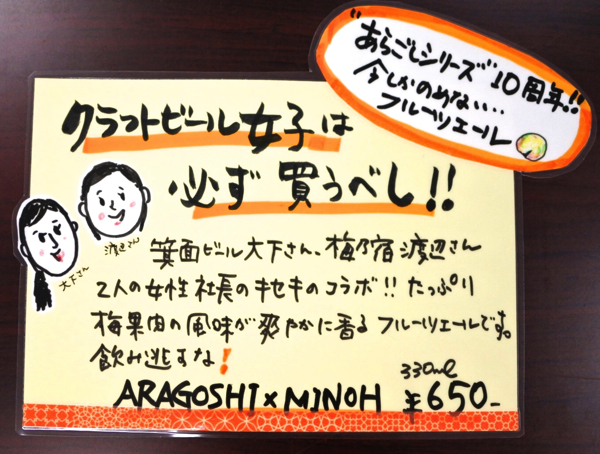 "あらごしシリーズ"10周年!!
今しかのめない..
フルーツエール
クラフトビール女子は
必ず買うべし!!
渡辺さん
大下さん
箕面ビール大下さん、梅乃宿渡辺さん
2人の女性社長のキセキのコラボ!!たっぷり
梅果肉の風味が爽やかに香るフルーツエールです。
飲み逃すな!
ARAGOSHI×MINOH 330ml ¥650-